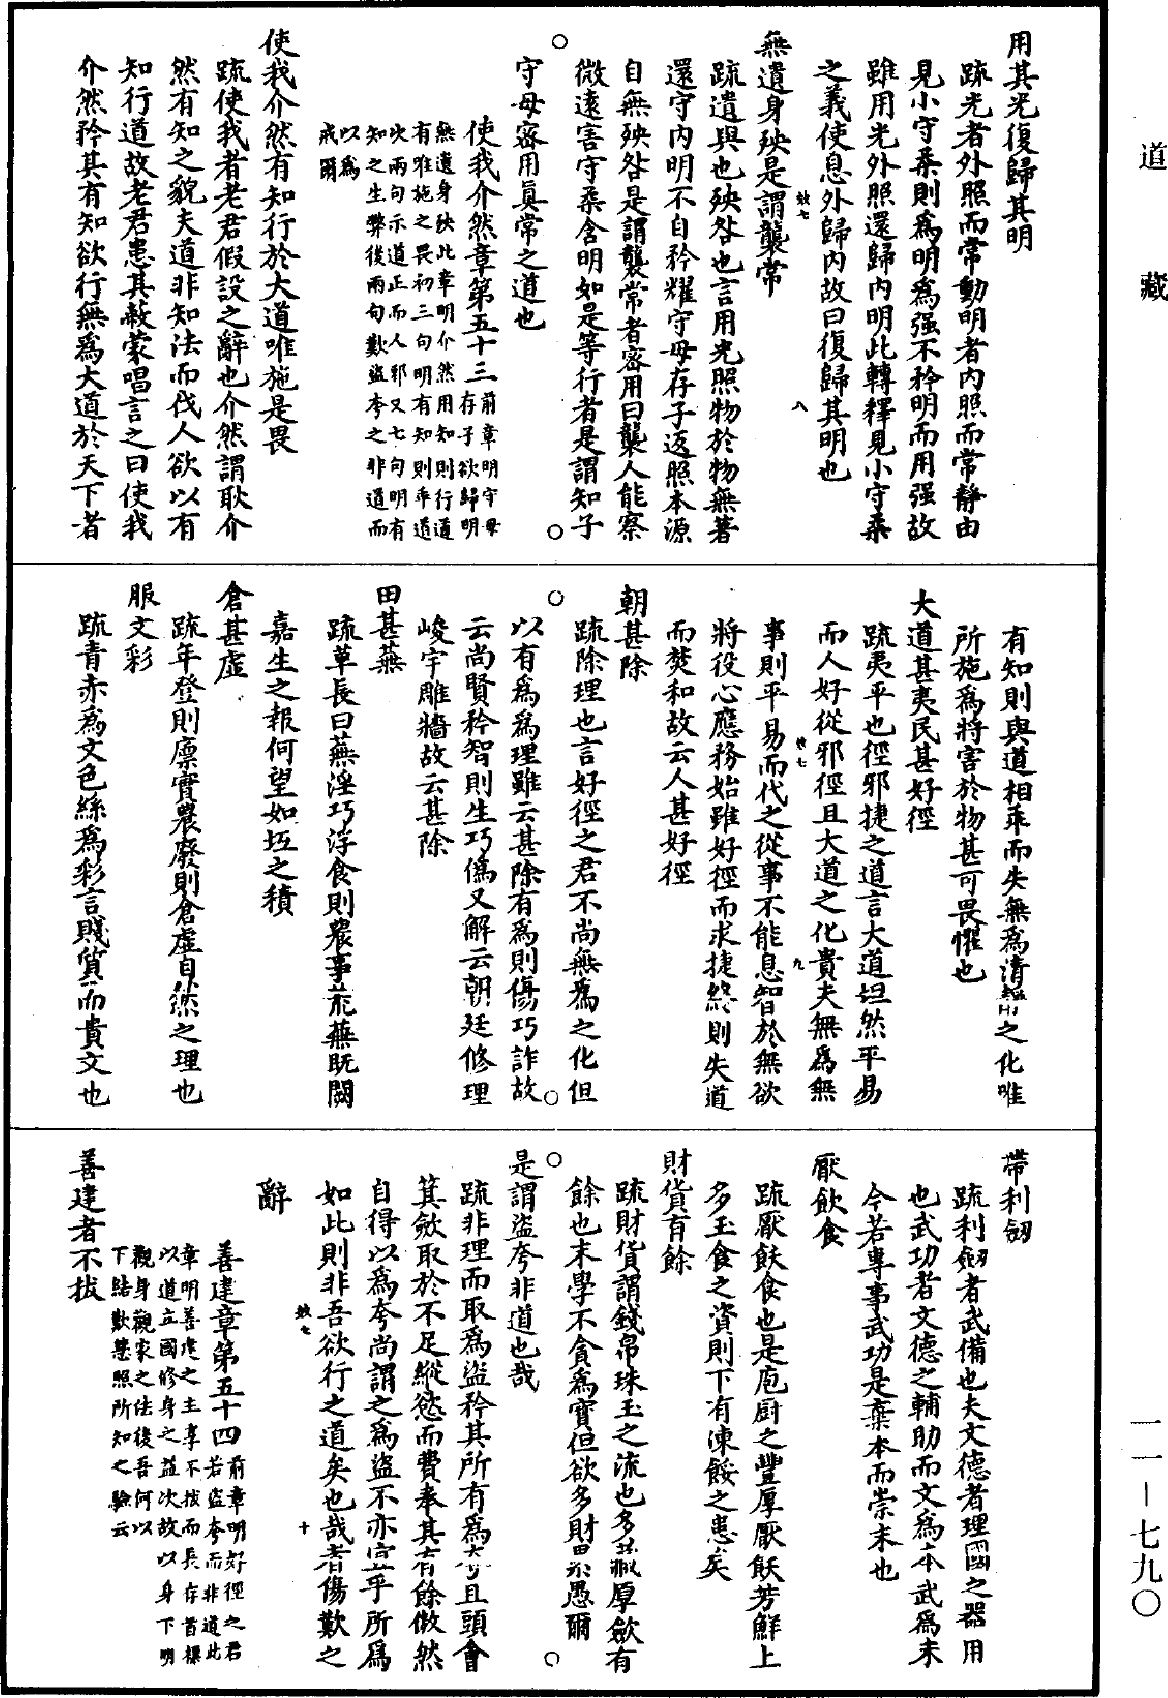 道藏
一一—七九〇
用其光復歸其明
疏光者外照而常動明者内照而常靜由
見小守柔則爲明爲强不矜明而用强故
雖用光外照還歸内明此轉釋見小守柔
之義使息外歸内故曰復歸其明也
八
無遺身殃是謂襲常
疏遺與也殃咎也言用光照物於物無著
還守内明不自矜耀守母存子返照本源
自無殃咎是謂襲常者密用曰襲人能察
微遠害守柔含明如是等行者是謂知子
守母密用眞常之道也
使我介然章第五十三
前章明守母
存子欲歸明
無遺身殃此章明介然用知則行道
有唯施之畏初三句明有知則乖道
次兩句示道正而人邪又七句明有
知之生弊後兩句歎盜夸之非道而
以爲
戒爾
使我介然有知行於大道唯施是畏
疏使我者老君假設之辭也介然謂耿介
然有知之貌夫道非知法而伐人欲以有
知行道故老君患其敝蒙唱言之曰使我
介然矜其有知欲行無爲大道於天下者
有知則與道相乖而失無爲清靜之化唯
所施爲將害於物甚可畏懼也
大道甚夷民甚好徑
疏夷平也徑邪捷之道言大道坦然平易
而人好從邪徑且大道之化貴夫無爲無
九
事則平易而代之從事不能息智於無欲
將役心應務始雖好徑而求捷終則失道
而焚和故云人甚好徑
朝甚除
疏除理也言好徑之君不尚無爲之化但
以有爲爲理雖云甚除有爲則傷巧詐故
云尚賢矜智則生巧僞又解云朝廷修理
峻宇雕牆故云甚除
田甚蕪
疏草長曰蕪淫巧浮食則農事荒蕪既闕
嘉生之報何望如坻之積
倉甚虛
疏年登則廪實農廢則倉虛自然之理也
服文彩
疏青赤爲文色絲爲彩言賤質而貴文也
帶利劒
疏利劒者武備也夫文德者理國之器用
也武功者文德之輔助而文爲本武爲末
今若專事武功是棄本而崇末也
厭飲食
疏厭飫食也是庖厨之豐厚厭飫芳鮮上
多玉食之資則下有凍餒之患矣
財貨有餘
疏財貨謂錢帛珠玉之流也多藏厚斂有
餘也末學不貪爲寶但欲多財累愚爾
是謂盜夸非道也哉
疏非理而取爲盜矜其所有爲夸且頭會
箕斂取於不足縱慾而費奉其有餘傲然
自得以爲夸尚謂之爲盜不亦宜乎所爲
如此則非吾欲行之道矣也哉者傷歎之
十
辭
善建章第五十四
前章明好徑之君
若盜夸而非道此
章明善建之主享不拔而長存首標
以道立國修身之益次故以身下明
觀身觀家之法後吾何以
下結歎慧照所知之驗云
善建者不拔